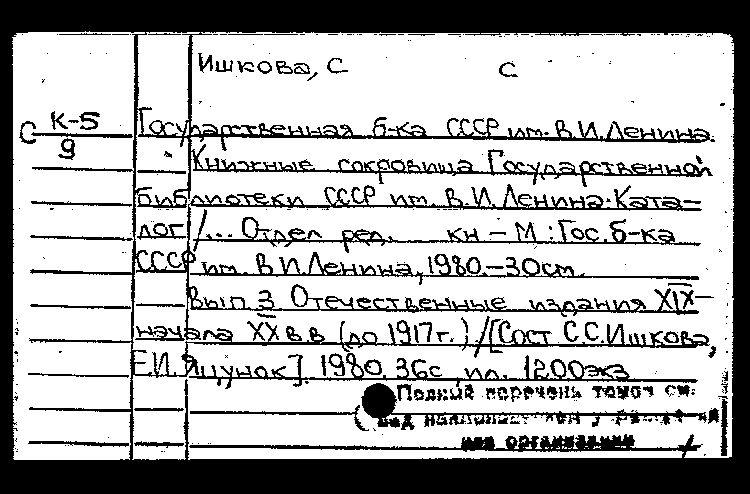 Ишкова, С С
С К-5 Государственная б-ка СССР им. В.И.Ленина.
9 Книжные сокровища Государственной
библиотеки СССР им. В.И.Ленина. Ката-
лог /... Отдел ред. кн - М : Гос. б-ка
СССР им. В.И.Ленина, 1980.-30см.
Вып 3 Отечественные издания XIX-
начала XX в.в (до 1917г.) /[Сост С.С.Ишкова,
Е.И.Яцунок]. 1980. 36с ил. 1200экз
Полный перечень томов см.
под у
или организации